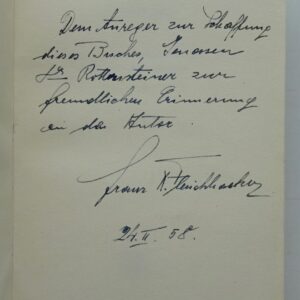 Dem Anreger zur Schaffung
dieses Buches, Genossen
Dr. Rottensteiner zur
freundlichen Erinnerung
an das Autor.
Franz K. Fleischhacker
24. II. 58.